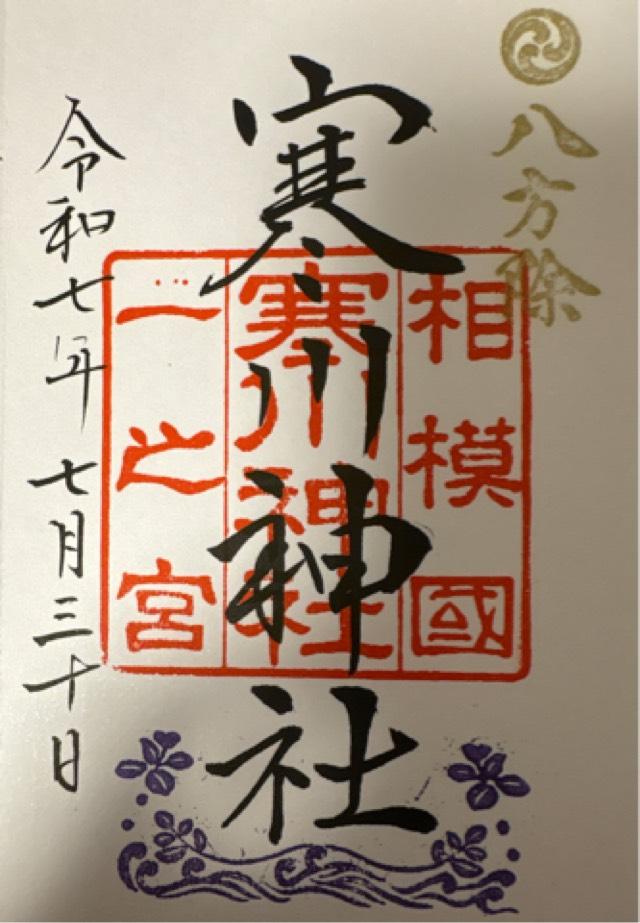 八方除
相模國
寒川神社
一之宮
寒川神社
令和七年七月三十日